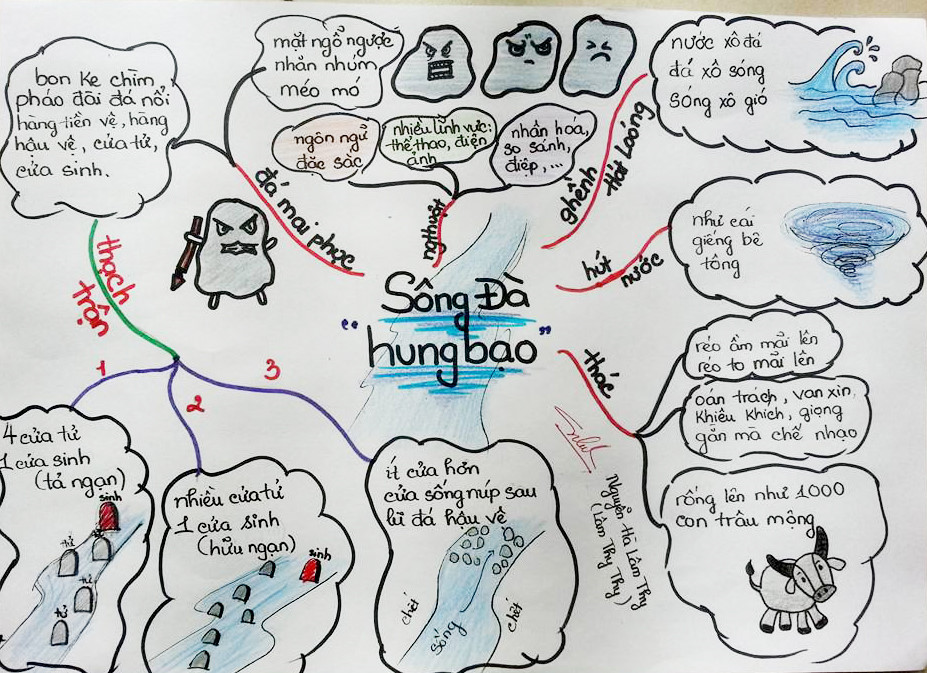 Sông Đà
"hung bạo"
đá mai phục
mặt ngổ ngược
nhăn nhúm
méo mó
bon ke chìm,
pháo đài đá nổi
hàng tiền vệ, hàng
hậu vệ, cửa tử,
cửa sinh.
thạch
trận
1
4 cửa tử
1 cửa sinh
(tả ngạn)
sinh
tử
tử
tử
tử
2
nhiều cửa tử
1 cửa sinh
(hữu ngạn)
sinh
3
ít cửa hơn
cửa sống núp sau
lũ đá hậu vệ
chết
sống
chết
ng thuật
ngôn ngữ
đặc sắc
nhiều lĩnh vực:
thể thao, điện
ảnh
nhân hóa,
so sánh,
điệp, ...
ghềnh
Hát Loóng
nước xô đá
đá xô sóng
sóng xô gió
hút
nước
như cái
giếng bê
tông
thác
réo ầm mãi lên
réo to mãi lên
oán trách, van xin,
khiêu khích, giọng
gằn mà chế nhạo
rống lên như 1000
con trâu mộng
Nguyễn Hà Lâm Thy
(Lâm Thy Thy)